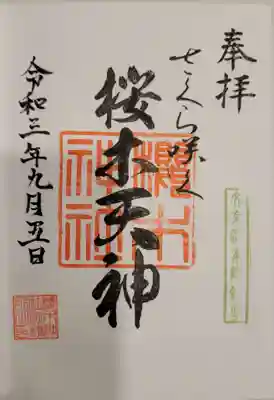 奉拝
さくら咲く
桜木天神
櫻木
神社
令和三年九月五日